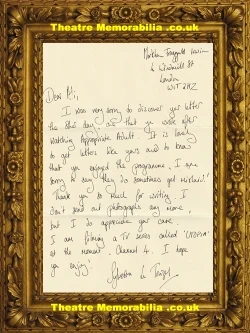 Theatre Memorabilia .co.uk
Markham Froggatt Irwin
4 Windmill St
London
W1T 2HZ
Dear
I was very sorry to discover your letter
the other day and that you wrote after
watching Appropriate Adult. It is lovely
to get letters like yours and to know
that you enjoyed the programme, I am
sorry to say they do sometimes get mislaid!
Thank you so much for writing. I
don't send out photographs any more
but I do appreciate your care.
I am filming a TV series called 'UTOPIA'
at the moment, Channel 4. I hope
you enjoy!
Theatre Memorabilia .co.uk